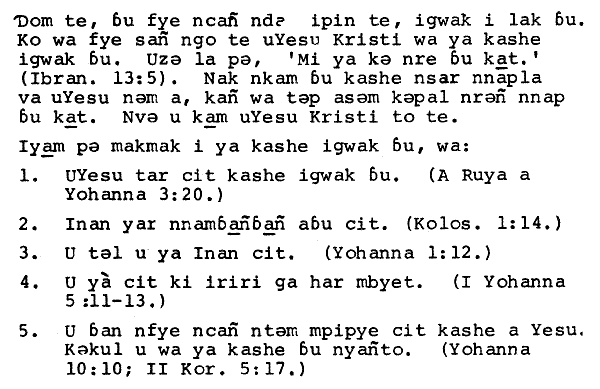 Ɗom te, ɓu fye ncañ ndə ipin te, igwak i lak ɓu.
Ko wa fye sañ ngo te uYesu Kristi wa ya kashe
igwak ɓu. Uzə la pə, 'Mi ya kə nre ɓu ka̱t.'
(Ibran. 13:5). Nak nkam ɓu kashe nsar nnapla
va uYesu nəm a, kañ wa təp asəm kəpal nrəñ nnap
ɓu ka̱t. Nvə u ka̱m uYesu Kristi to te.
Iya̱m pə makmak i ya kashe igwak ɓu, wa:
1. UYesu tar cit kashe igwak ɓu. (A Ruya a
Yohanna 3:20.)
2. Inan yar nnamɓa̱ñɓa̱ñ aɓu cit. (Kolos. 1:14.)
3. U təl u ya Inan cit. (Yohanna 1:12.)
4. U yà cit ki iriri ga har mbyet. (I Yohanna
5:11-13.)
5. U ɓan nfye ncañ ntəm mpipye cit kashe a Yesu.
Kəkul u wa ya kashe ɓu nyañto. (Yohanna
10:10; II Kor. 5:17.)